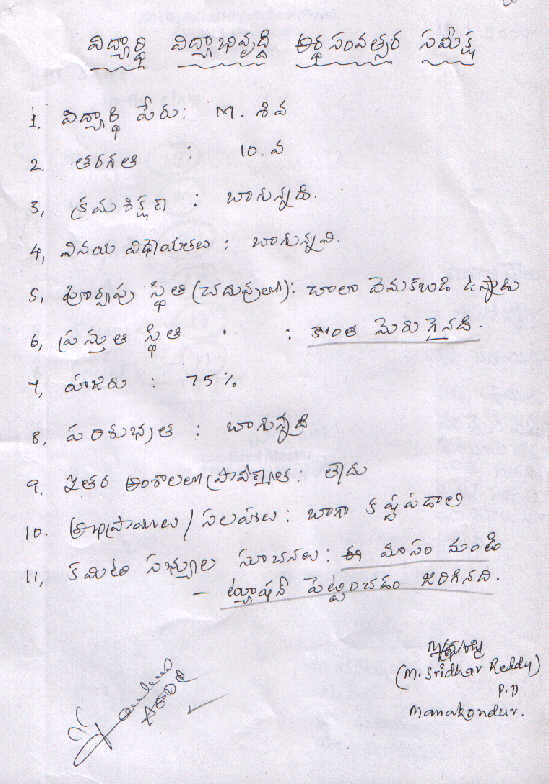 విద్యార్థి విద్యాభివృద్ధి అర్థసంవత్సర సమీక్ష
1. విద్యార్థి పేరు: M. శివ
2 తరగతి : 10.వ
3, క్రమశిక్షణ : బాగున్నది.
4, వినయ విధేయతలు : బాగున్నవి.
5, పూర్వపు స్థితి (చదువులో): చాలా వెనుకబడి ఉన్నాడు
6, ప్రస్తుత స్థితి : కొంత మెరుగైనది.
7, హాజరు : 75%
8. పరిశుభ్రత : బాగున్నది
9. ఇతర అంశాలలో ప్రావీణ్యత: లేదు
10. అభిప్రాయాలు/సలహాలు: బాగా కష్టపడాలి
11, కమిటి సభ్యుల సూచనలు: ఈ మాసం నుండి
- ట్యూషన్ పెట్టించడం జరిగినది.
(M. Sridhar Reddy)
P.D
Manakondur.